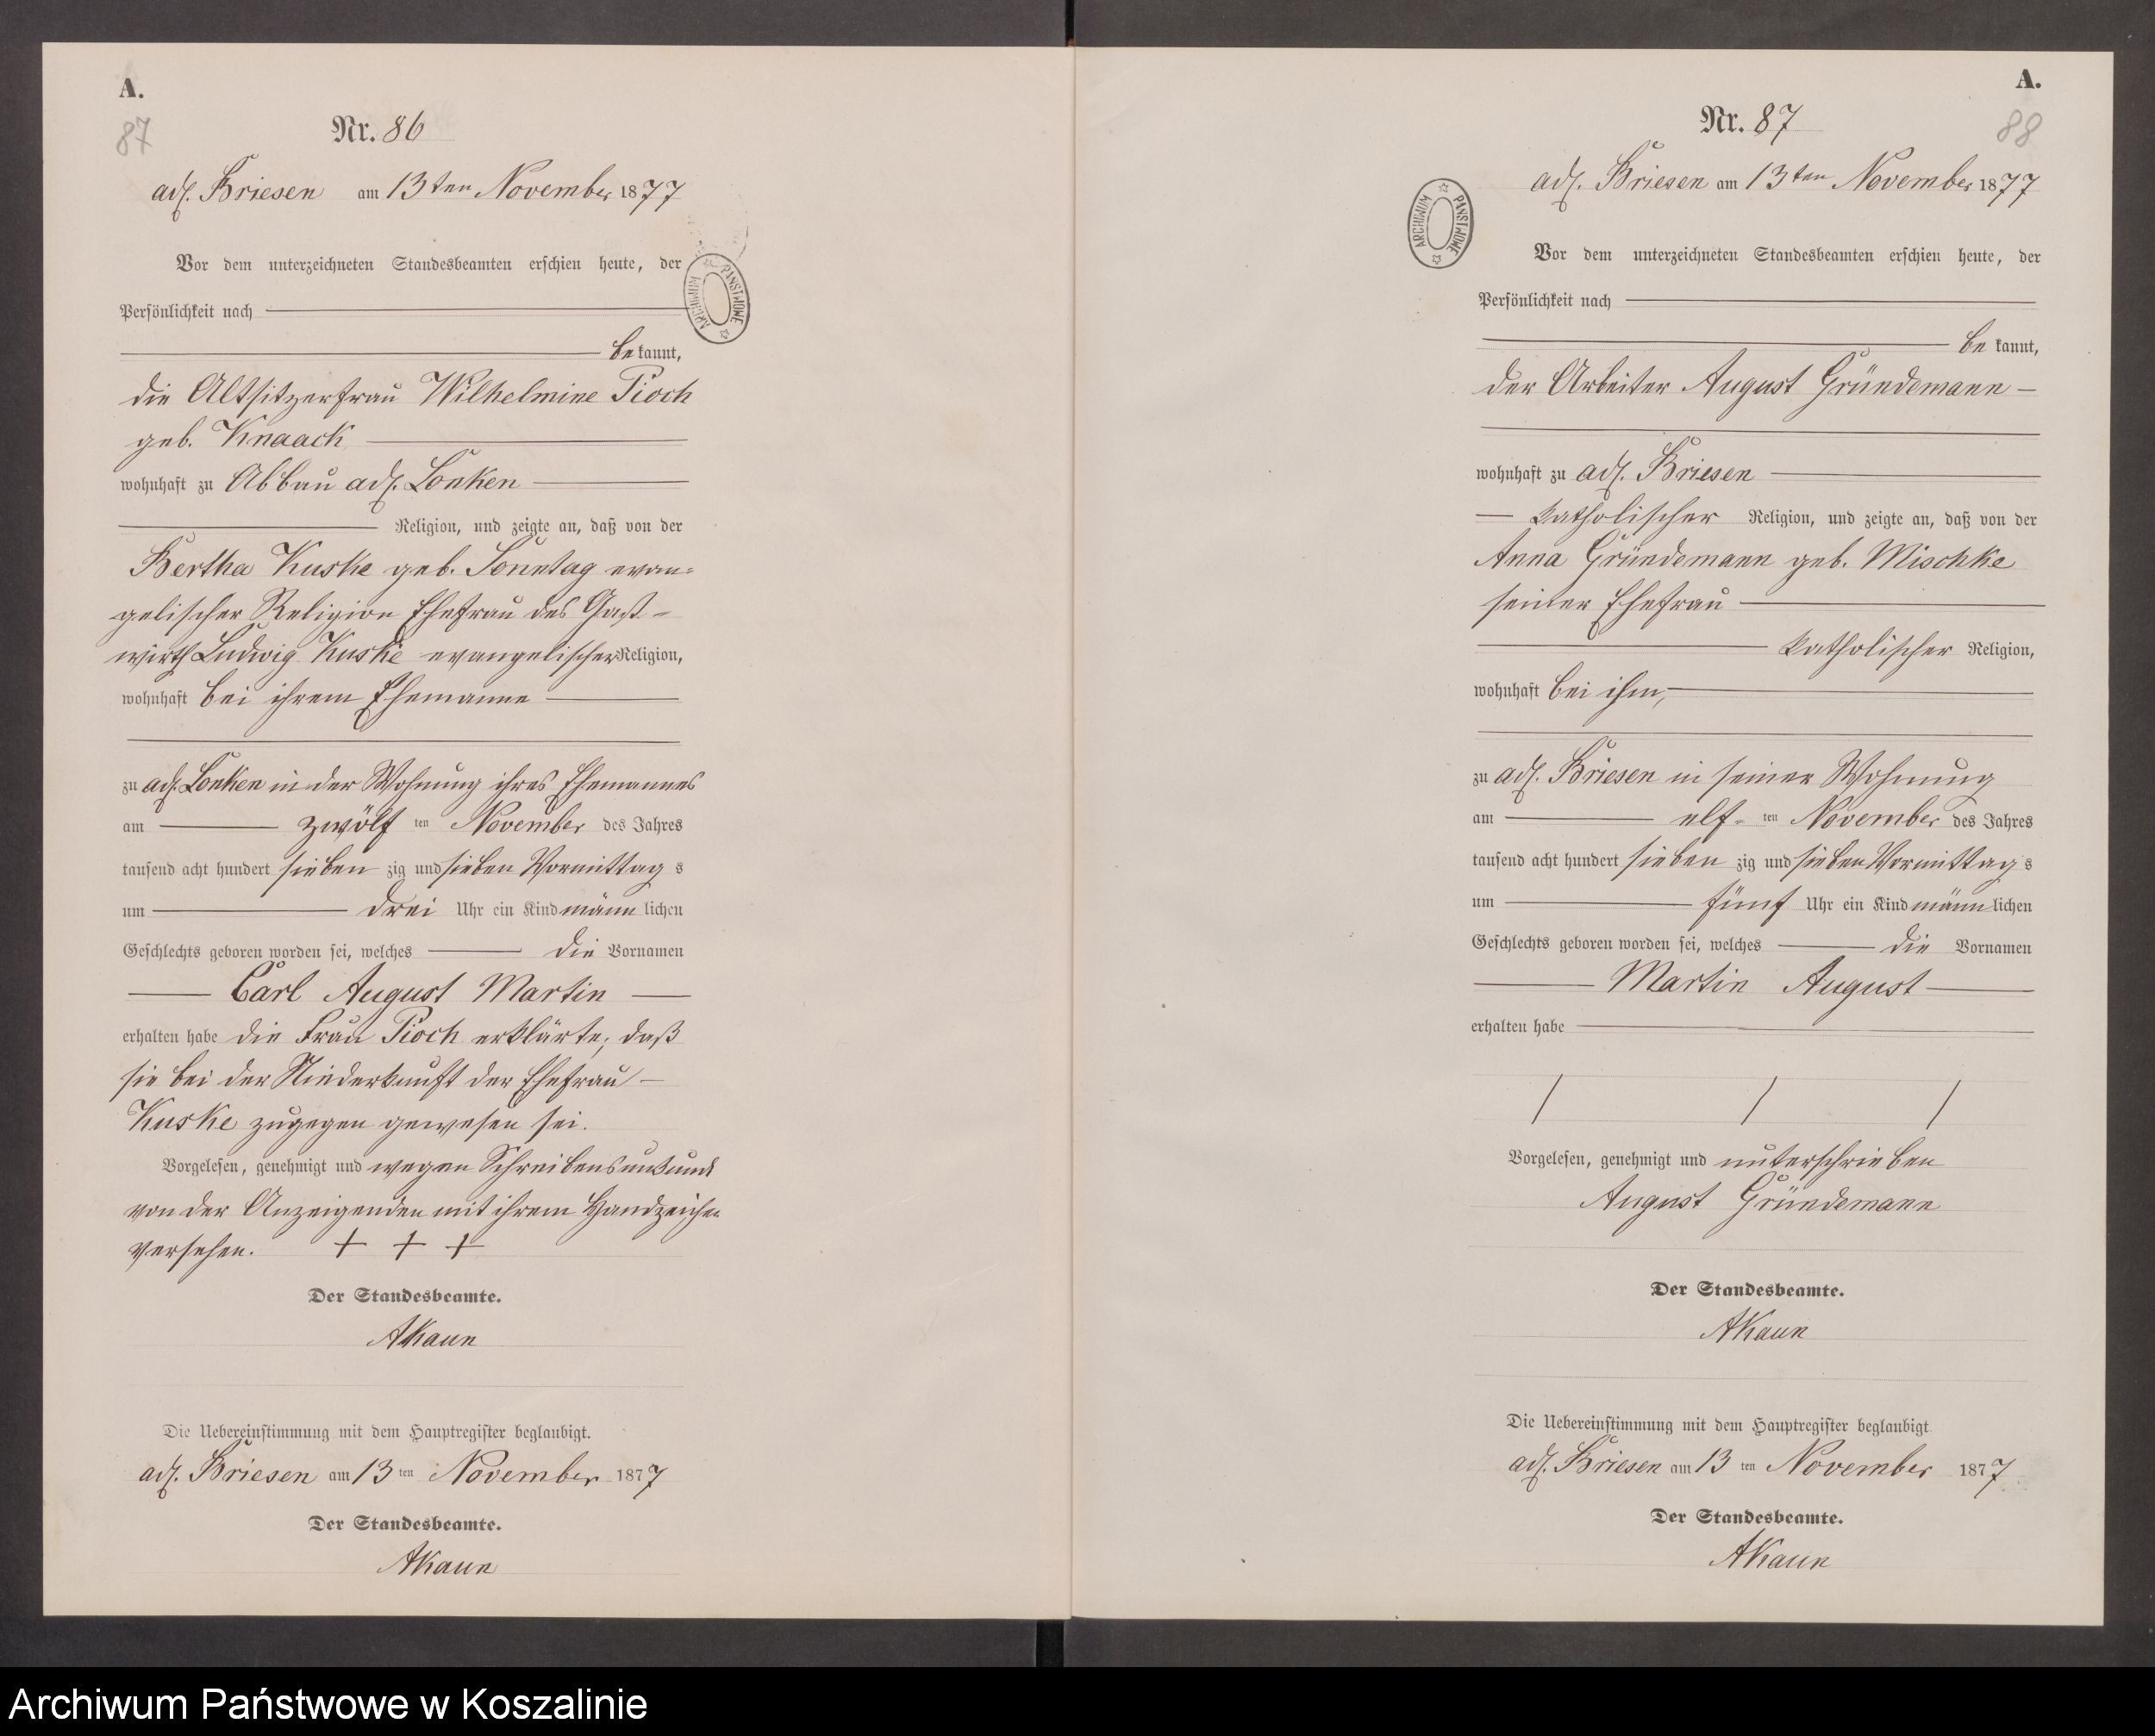 A.
87
Nr. 86
adl. Briesen am 13ten November 1877
Vor dem unterzeichneten Standesbeamten erschien heute, der
Persönlichkeit nach
bekannt,
die Altsitzerfrau Wilhelmine Pioch
geb. Knaack
wohnhaft zu Abbau adl. Lonken
Religion, und zeigte an, daß von der
Bertha Kuske geb. Sonntag evan-
gelischer Religion Ehefrau des Gast-
wirth Ludwig Kuske evangelischer Religion,
wohnhaft bei ihrem Ehemanne
zu adl. Lonken in der Wohnung ihres Ehemannes
am zwölften November des Jahres
tausend acht hundert siebenzig und sieben Vormittags
um drei Uhr ein Kind männlichen
Geschlechts geboren worden sei, welches die Vornamen
Carl August Martin
erhalten habe die Frau Pioch erklärte, daß
sie bei der Niederkunft der Ehefrau
Kuske zugegen gewesen sei.
Vorgelesen, genehmigt und wegen Schreibensunkunde
von der Anzeigenden mit ihrem Handzeichen
versehen. + + +
Der Standesbeamte.
AKaun
Die Uebereinstimmung mit dem Hauptregister beglaubigt.
adl. Briesen am 13ten November 1877
Der Standesbeamte.
AKaun
ARCHIWUM PAŃSTWOWE
A.
88
Nr. 87
adl. Briesen am 13ten November 1877
Vor dem unterzeichneten Standesbeamten erschien heute, der
Persönlichkeit nach
bekannt,
der Arbeiter August Gründemann
wohnhaft zu adl. Briesen
katholischer Religion, und zeigte an, daß von der
Anna Gründemann geb. Mischke
seiner Ehefrau
katholischer Religion,
wohnhaft bei ihm,
zu adl. Briesen in seiner Wohnung
am elf-ten November des Jahres
tausend acht hundert siebenzig und sieben Vormittags
um fünf Uhr ein Kind männlichen
Geschlechts geboren worden sei, welches die Vornamen
Martin August
erhalten habe
Vorgelesen, genehmigt und unterschrieben
August Gründemann
Der Standesbeamte.
AKaun
Die Uebereinstimmung mit dem Hauptregister beglaubigt
adl. Briesen am 13ten November 1877
Der Standesbeamte.
AKaun
ARCHIWUM PAŃSTWOWE
Archiwum Państwowe w Koszalinie